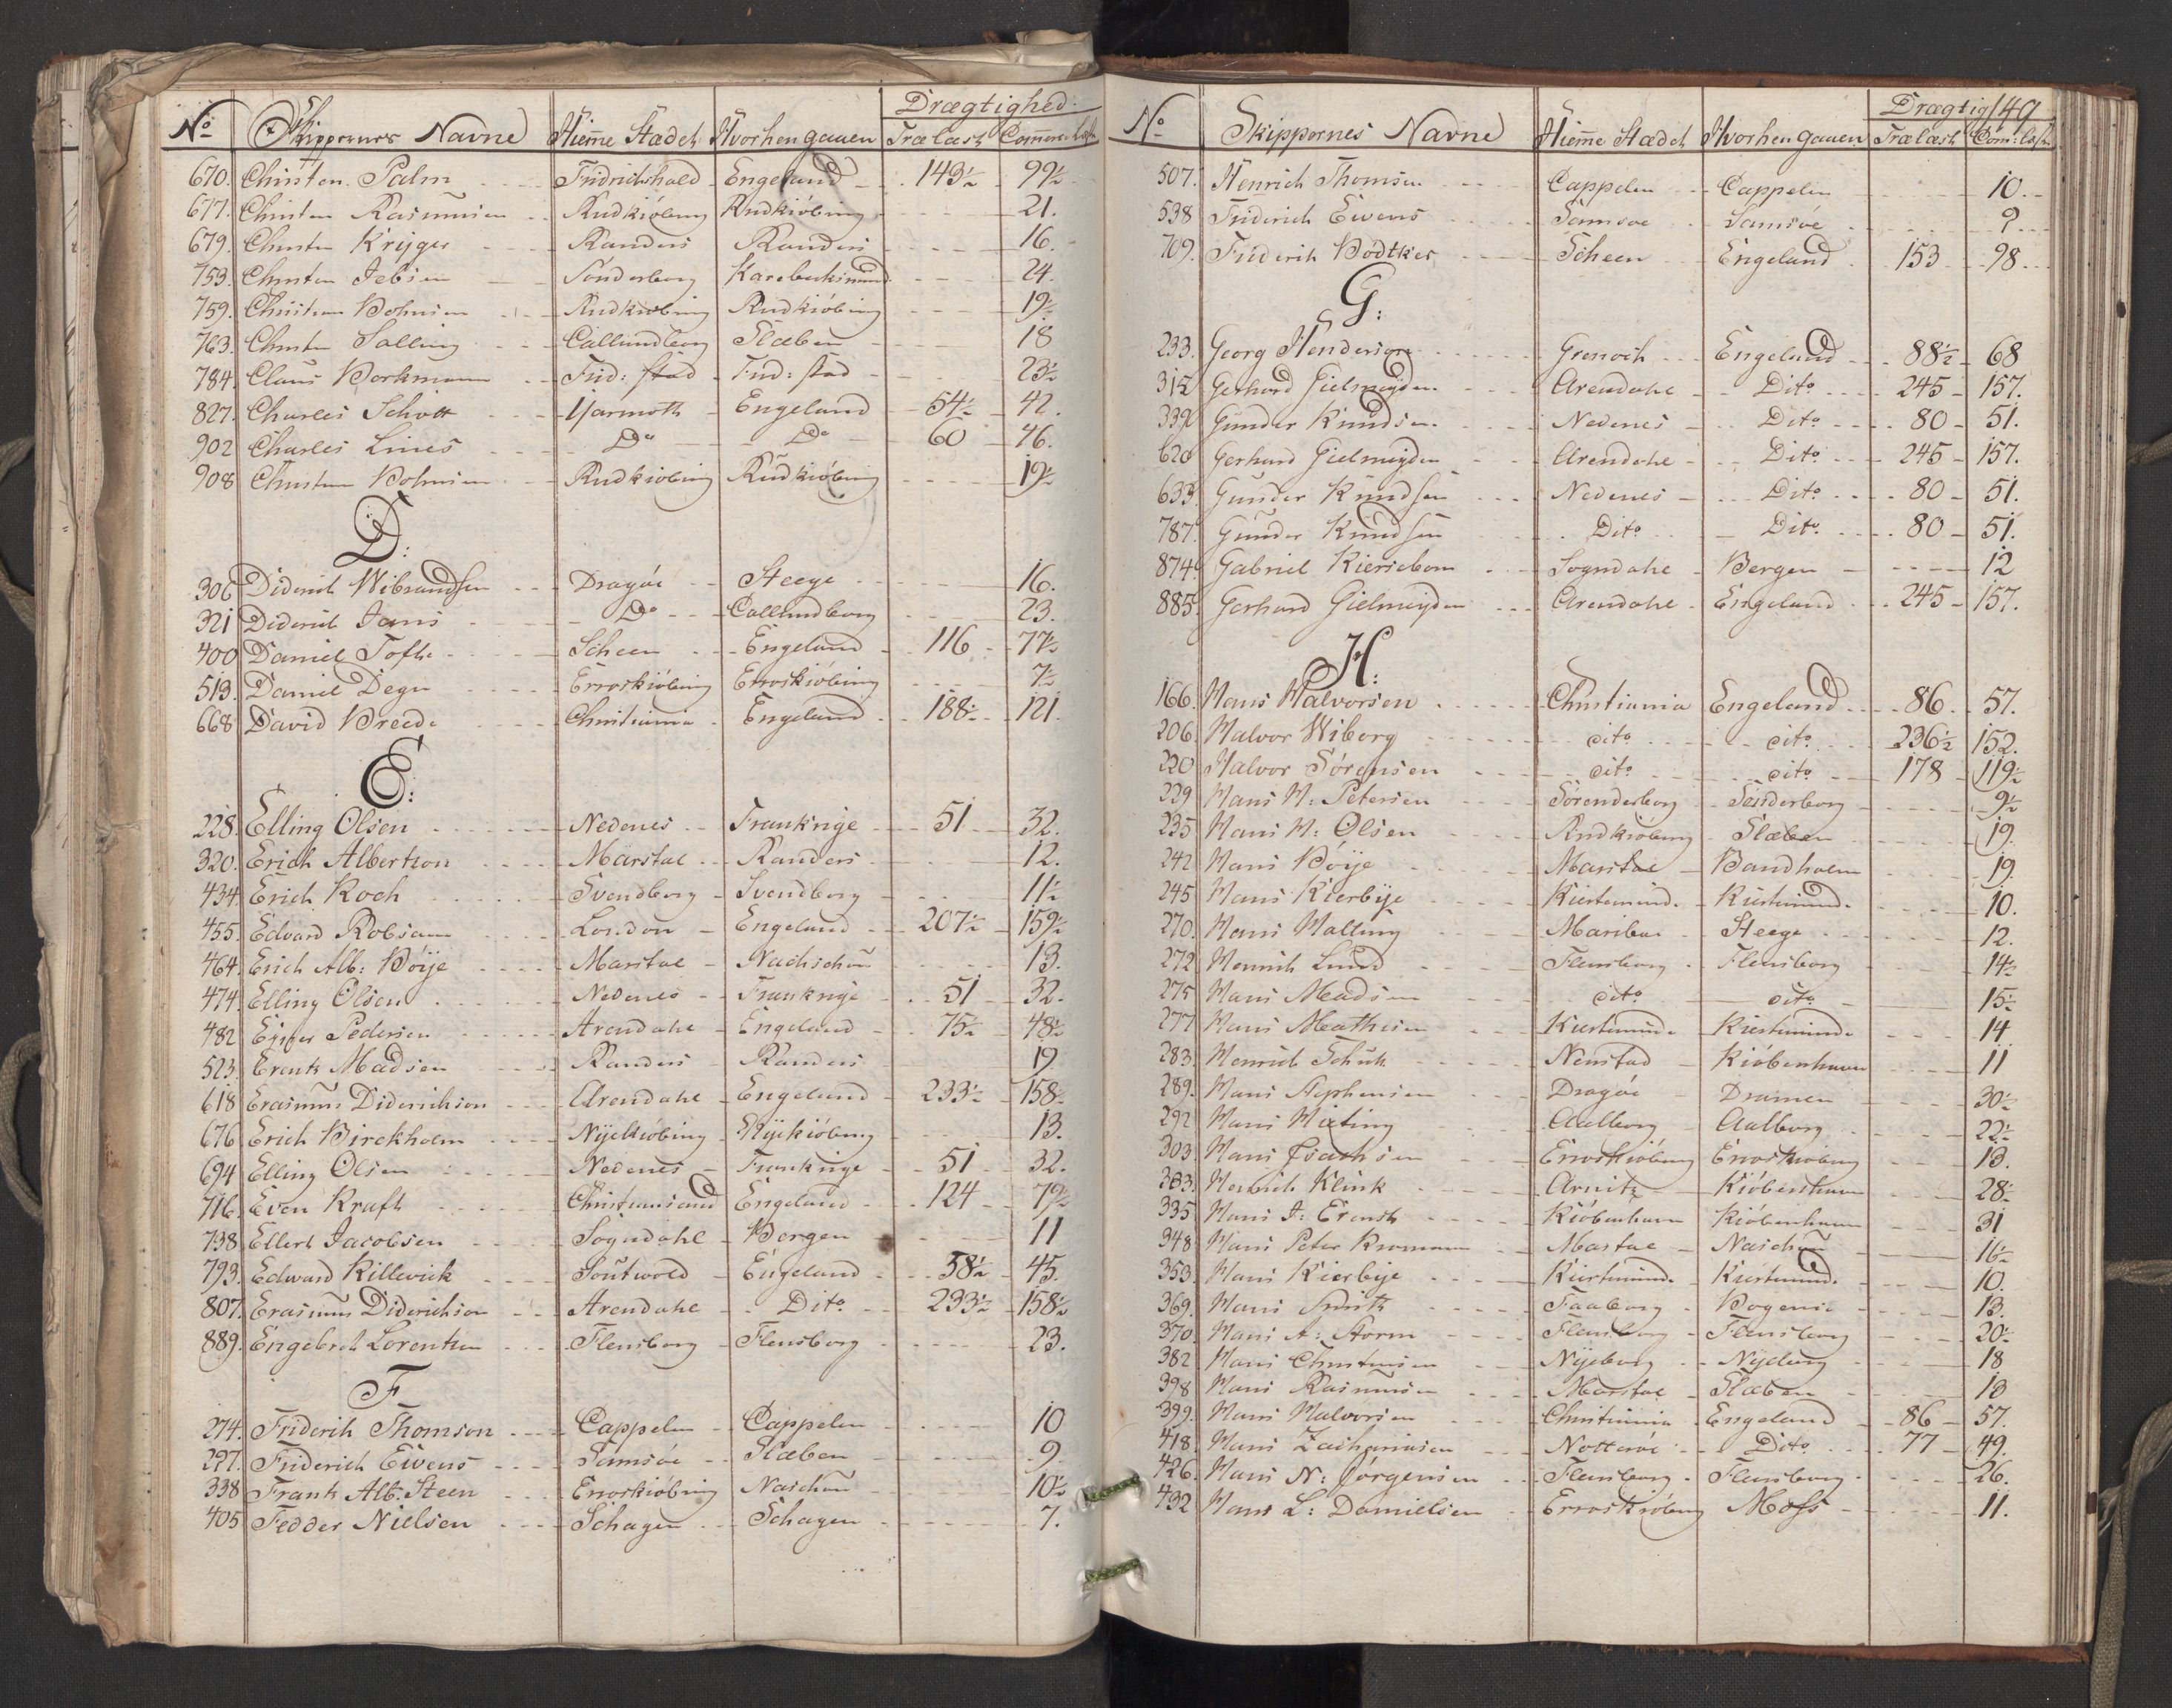 No Skippernes Navne Hieme Stædet Hvorhen gaaen Drægtighed: Trælæst Commerce Læst
670. Christen Palm Fridrichshald Engeland 143½ 99½
677. Christen Rasmusen Rudkiöbing Rudkiöbing 21.
679. Christen Krÿger Randers Randers 16.
753. Christen Jebsen Sönderborg Karebecksmund 24.
759. Christian Bohnsen Rudkiöbing Rudkiöbing 19½
763. Christen Salling Callundborg Slæben 18
784. Claus Borkmann Frid: stad Frid: stad 23½
827. Charles Schott Yarmoth Engeland 54½ 42.
902 Charles Lines Do Do 60 46.
908 Christian Bohnsen Rudkiöbing Rudkiöbing 19½
D:
306 Diderich Wibrandsen Dragöe Steege 16.
321 Diderich Jans Do Callundborg 23.
400 Daniel Tofte Scheen Engeland 116 77½
513. Daniel Degn Erroskiöbing Erroskiöbing 7½
668 David Breede Christiania Engeland 188½ 121.
E:
228. Elling Olsen Nedenes Frankrige 51 32.
320. Erich Albertson Marstal Randers 12.
434. Erich Koch Svendborg Svendborg 11½
455. Edvard Robsam London Engeland 207½ 159½
464. Erich Alb: Böÿe Marstal Nachschou 13.
474. Elling Olsen Nedenes Frankrige 51 32.
482 Pedersen Arendahl Engeland 75½ 48½
523. Erentz Madsen Randers Randers 19.
618 Erasmus Diderichson Arendahl Engeland 233½ 158½
676 Erich Birckholm Nÿekiöbing Nÿekiöbing 13.
694 Elling Olsen Nedenes Frankrige 51 32.
716. Even Kraft Christiansand Engeland 124 79½
738. Ellert Jacobsen Sogndahl Bergen 11
793. Edward Killwick Soutwold Engeland 58½ 45.
807. Erasmus Diderichson Arendahl Dito 233½ 158½
889. Engebret Lorentzen Flensborg Flensborg 23.
F
274. Friderich Thomson Cappelen Cappelen 10
297. Friderich Eivens Samsöe Slæben 9.
338 Frantz Alb. Steen Erroskiöbing Naschou 10½
405 Fedder Nielsen Schagen Schagen 7.
149
No Skippernes Navne Hieme Stædet Hvorhen gaaen Drægtig Trælæst Com: læst
507. Henrich Thomsen Cappelen Cappelen 10.
538 Friderich Eivens Samsoe Samsöe 9.
709. Friderich Bödtker Scheen Engeland 153 98.
G:
233. Georg Henderson Grenoch Engeland 88½ 68
312 Gerhard Gielmeÿden Arendahl Dito 245 157.
339 Gunder Knudsen Nedenes Dito 80 51.
620 Gerhard Gielmeÿden Arendahl Dito 245 157.
633. Gunder Knudsen Nedenes Dito 80 51.
787. Gunder Knudsen Dito Dito 80 51.
874. Gabriel Kiersebom Sogndahl Bergen 12
885. Gerhard Gielmeÿden Arendahl Engeland 245 157.
H:
166. Hans Halvorsen Christiania Engeland 86 57.
206. Halvor Wiborg dito dito 236½ 152.
220 Halvor Sörensen dito dito 178 119½
229 Hans H: Petersen Sörenderborg Sönderborg 9½
235 Hans H: Olsen Rudkiöbing Slæben 19.
242 Hans Böÿe Marstal Bandholm 19
245 Hans Kierbÿe Kiertemind. Kiertemind. 10.
270. Hans Malling Mariboe Steege 12.
272 Henrich Lund Flensborg Flensborg 14½
275 Hans Madsen dito dito 15½
277 Hans Mathisen Kiertemind. Kiertminde 14
283. Henrich Schutt Neustad Kiöbenhavn 11
289. Hans Stephensen Dragöe Dramen 30½
292 Hans Hviting Aalborg Aalborg 22½
303. Hans Isachsen Erroskiöbing Erroskiöbing 13.
333. Henrich Klink Arnitz Kiöbenhavn 28½
335. Hans J: Erentz Kiöbenhavn Kiöbenhavn 31
348 Hans Peter Kromann Marstal Naschou 16½
353. Hans Kierbÿe Kiertemind. Kiertemind. 10.
369. Hans Smith Faaborg Bogense 13.
370. Hans A: Storm Flensborg Flensborg 20½
382 Hans Christensen Nÿeborg Nÿeborg 18
398 Hans Rasmusen Marstal Slæben 13
399. Hans Halvorsen Christiania Engeland 86 57.
418. Hans Zachariasen Notteröe Dito 77 49.
426. Hans N: Jörgensen Flensborg Flensborg 26.
432 Hans L: Danielsen Erroskiöbing Moss 11.